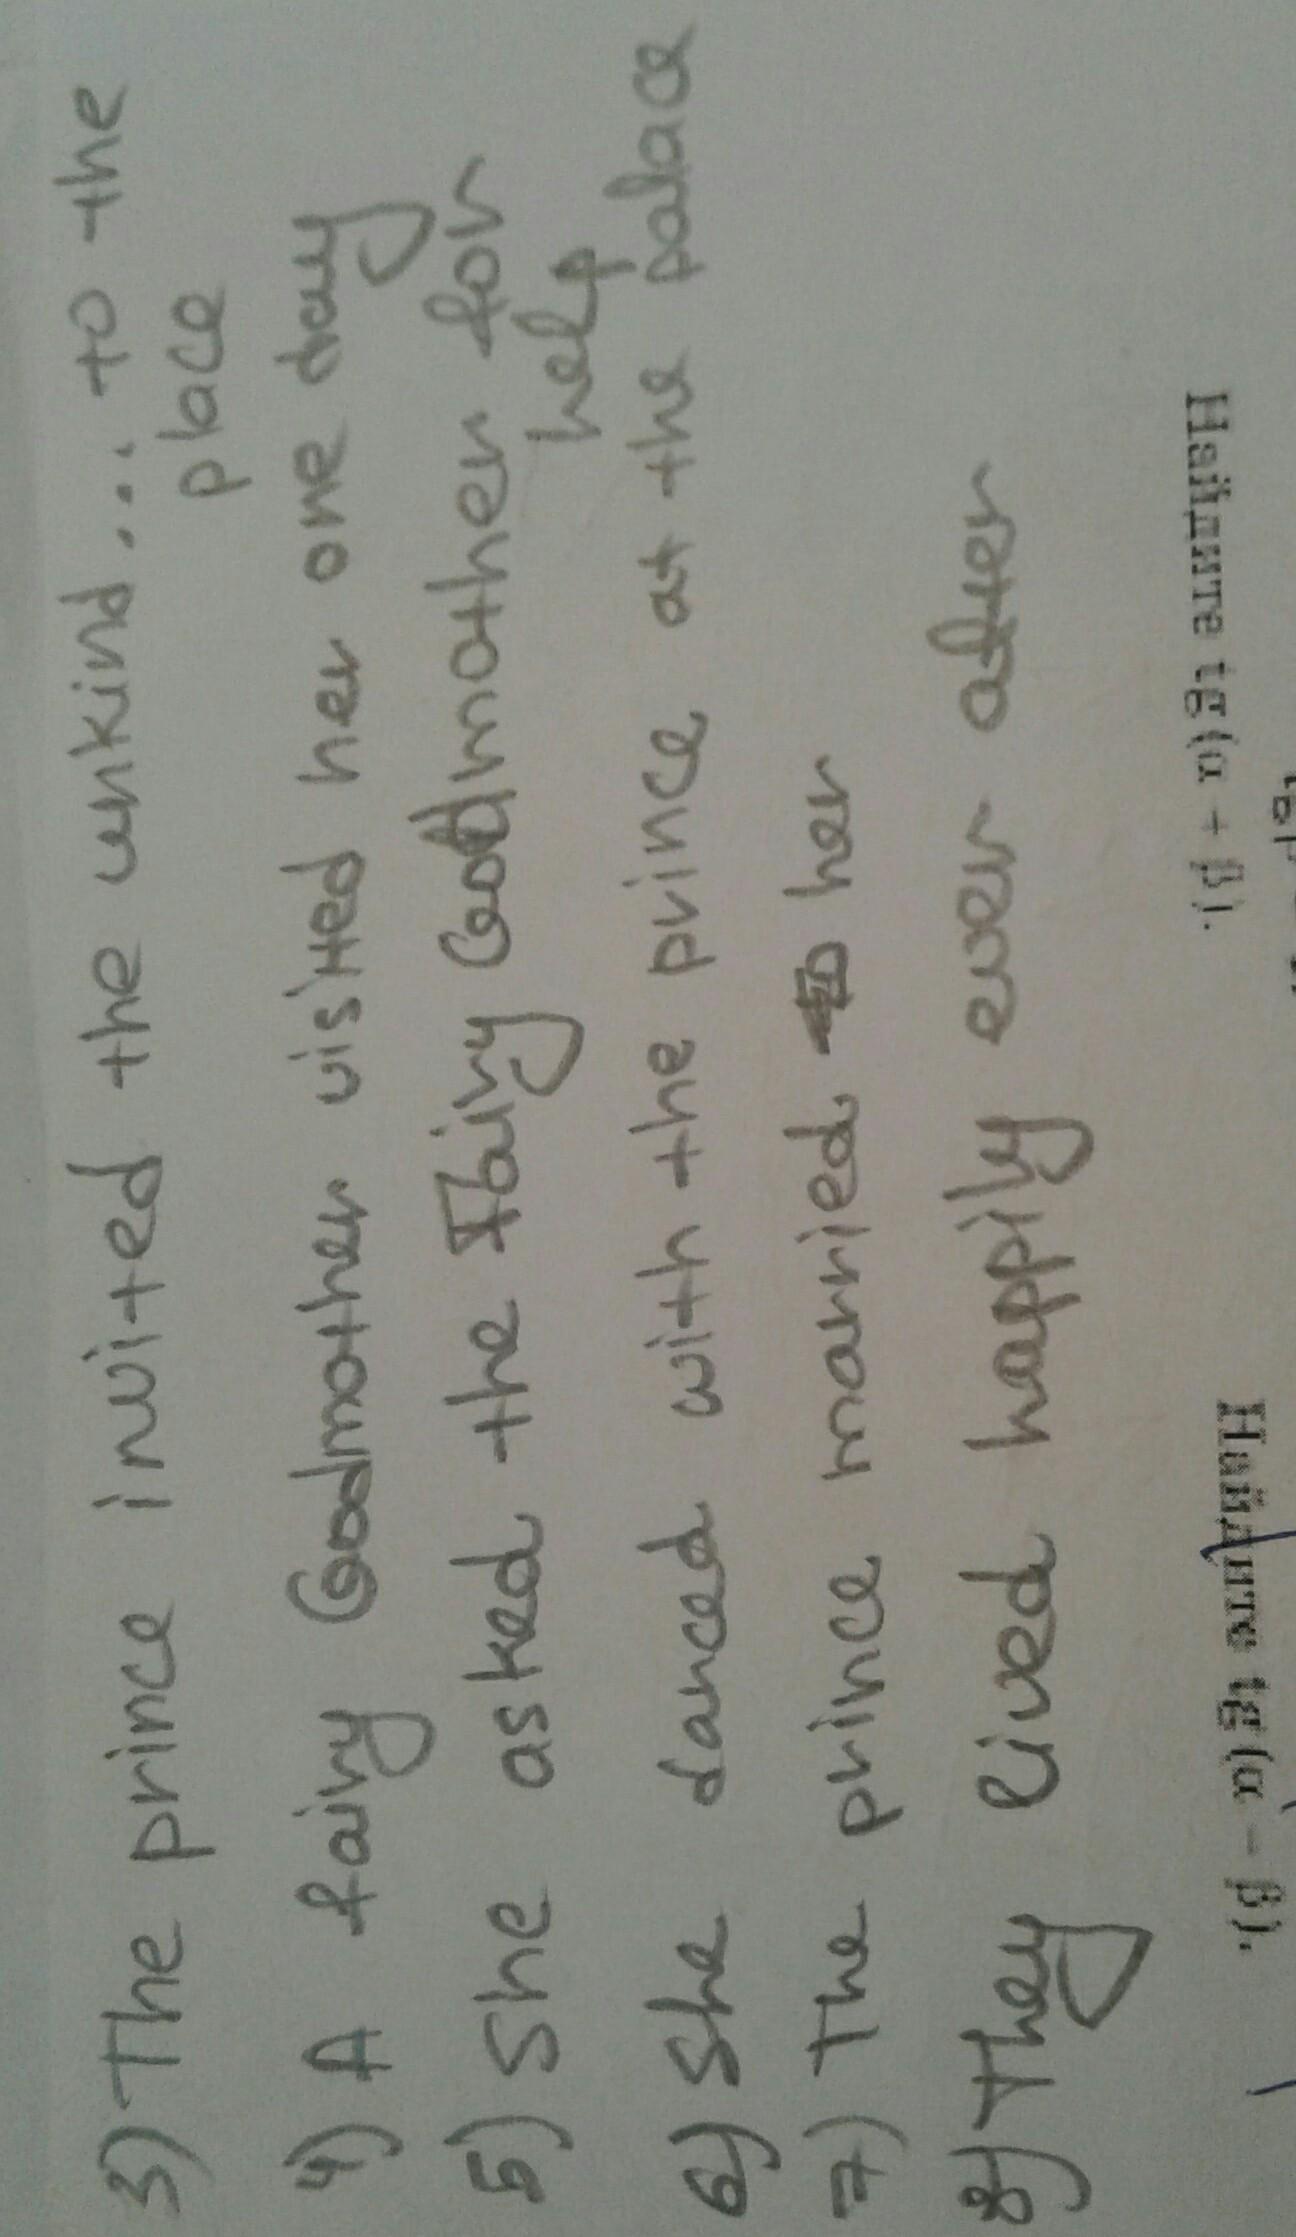 3) The prince invited the unkind... to the
place
4) A fairy Godmother visited her one day
5) She asked the Fairy Godmother for
help
6) She danced with the prince at the palace
7) The prince married her
8) They lived happily ever after
Найдите tg(α − β).
Найдите tg(α + β).